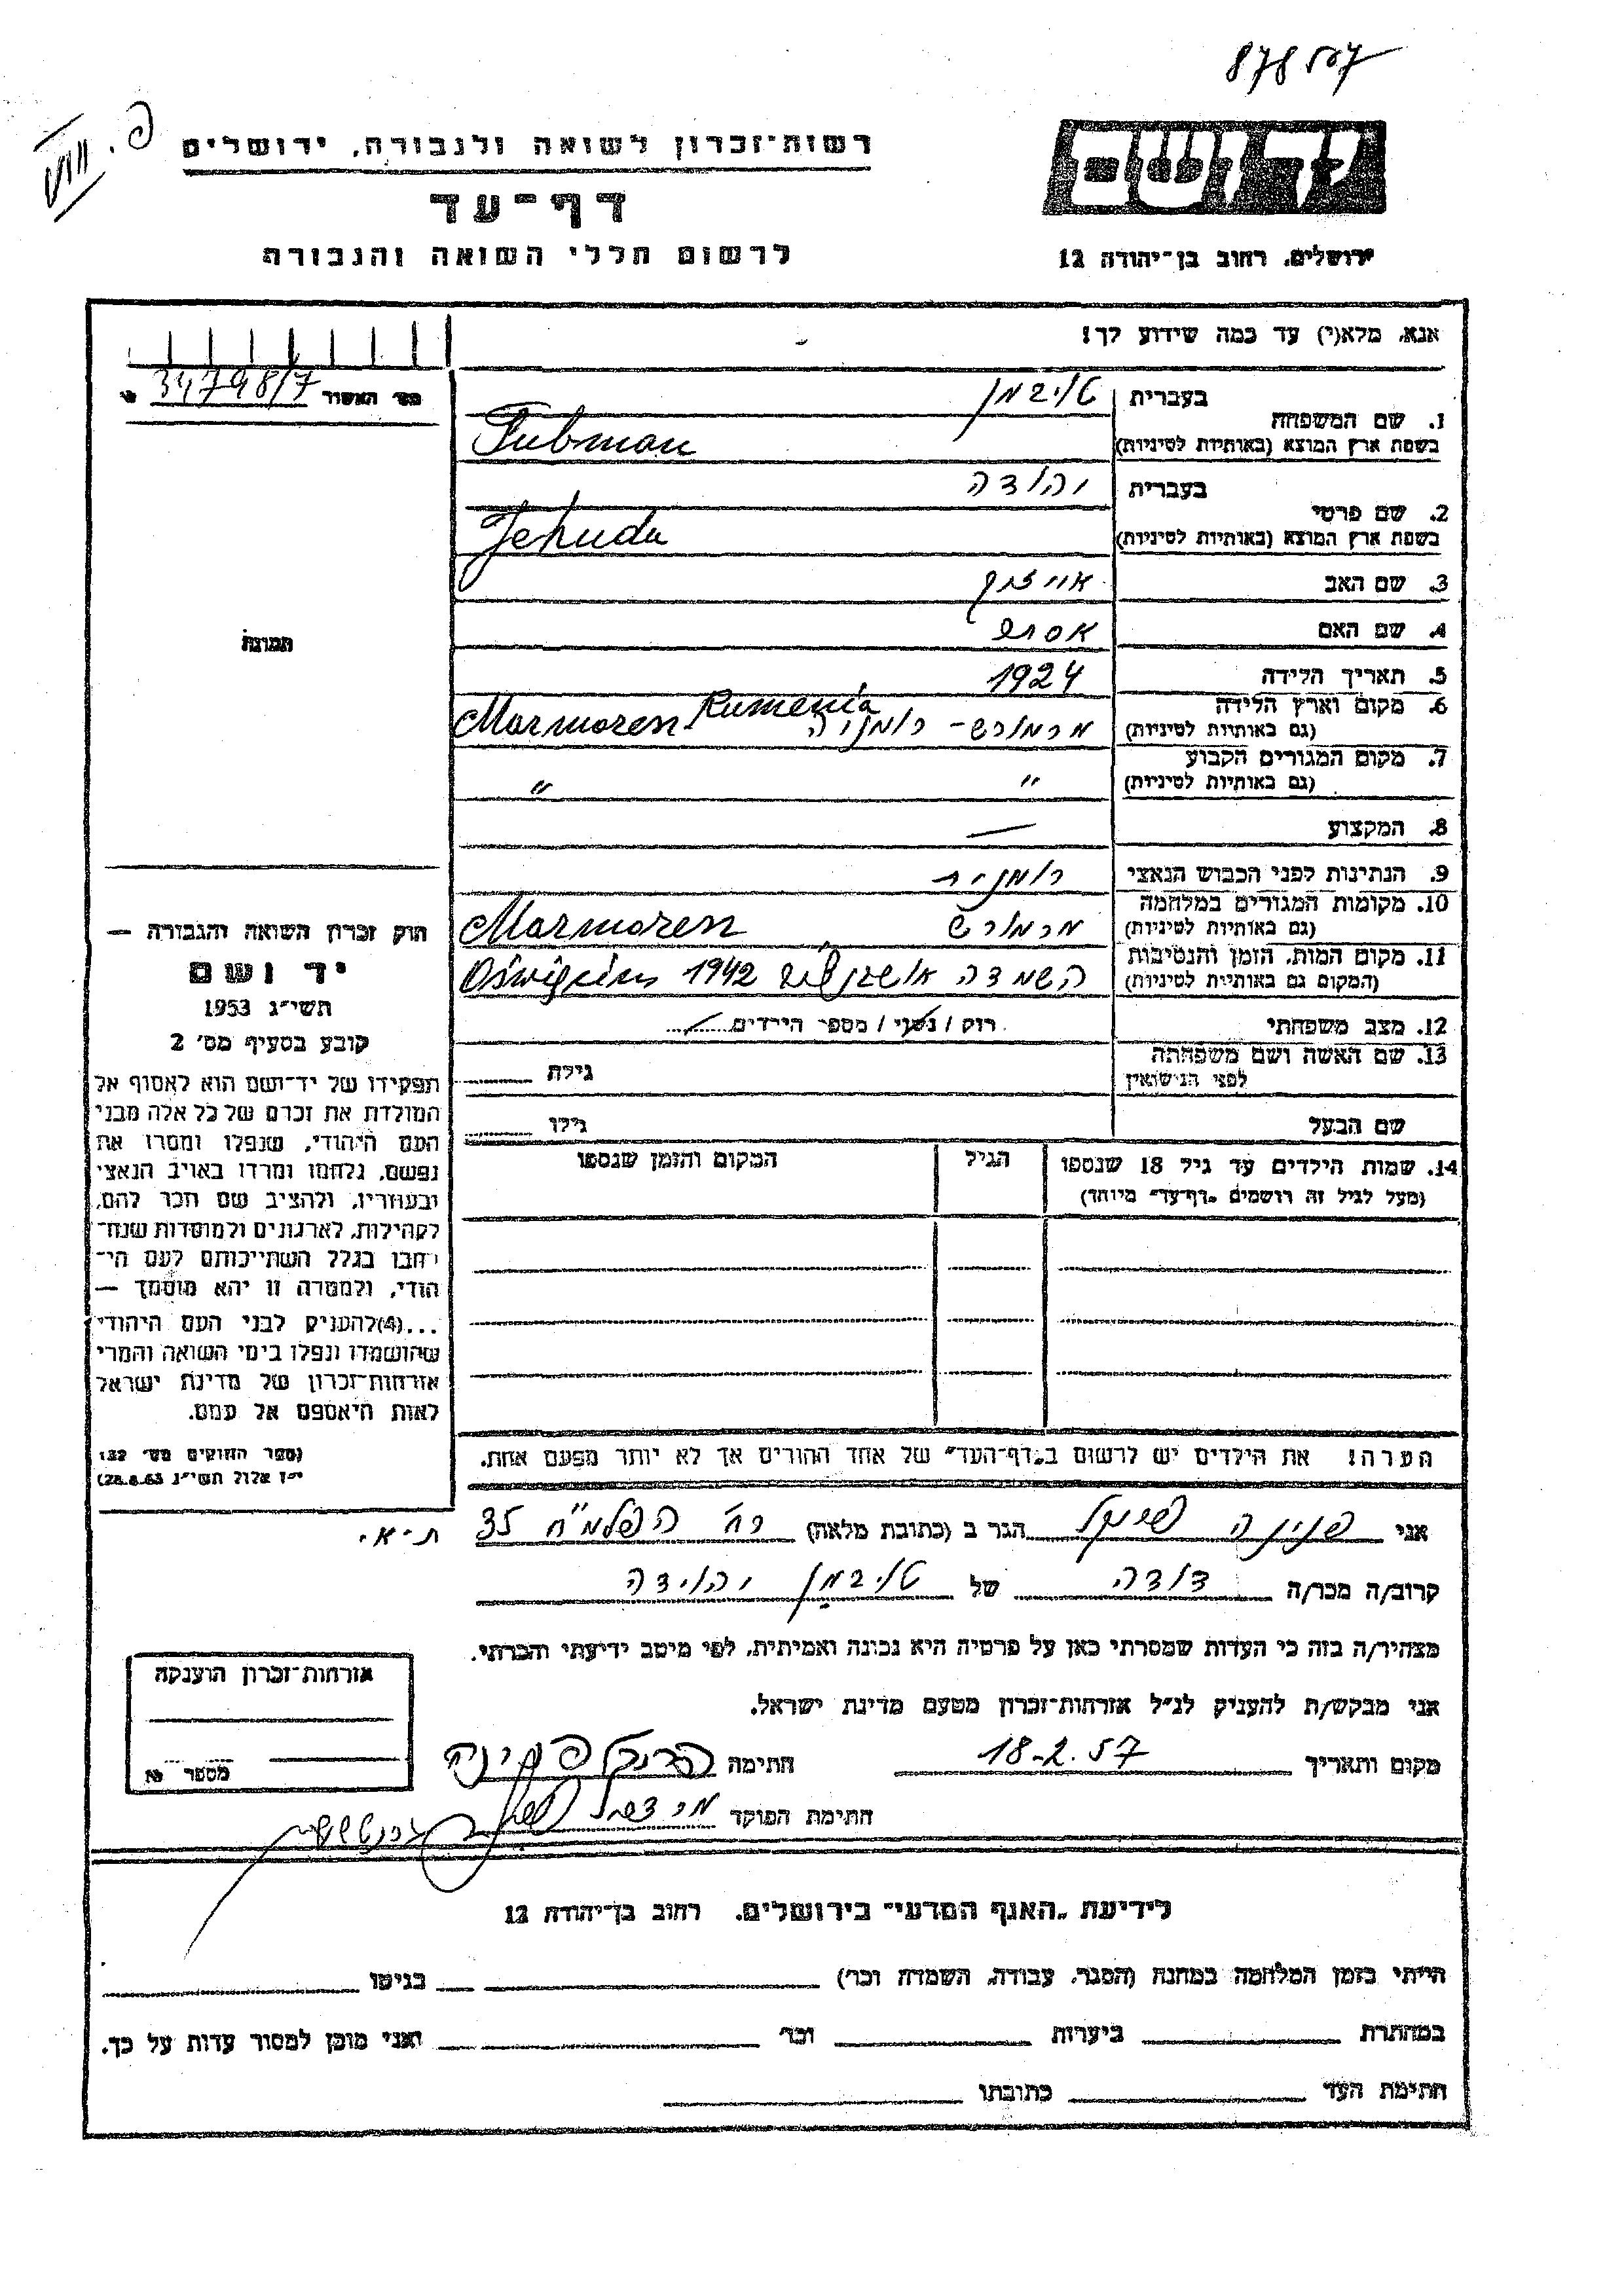 878507
רשות־זכרון לשואה ולגבורה, ירושלים
דף־עד
לרשום חללי השואה והגבורה
יד ושם
ירושלים, רחוב בן־יהודה 12
אנא, מלא(י) עד כמה שידוע לך!
1. שם המשפחה
בעברית טויבמן
בשפת ארץ המוצא (באותיות לטיניות) Tubman
2. שם פרטי
בעברית יהודה
בשפת ארץ המוצא (באותיות לטיניות) Jehuda
3. שם האב
4. שם האם
5. תאריך הלידה 1924
6. מקום וארץ הלידה מרמורש - רומניה Rumenia
(גם באותיות לטיניות) Marmoren
7. מקום המגורים הקבוע " "
(גם באותיות לטיניות)
8. המקצוע —
9. הנתינות לפני הכבוש הנאצי רומנית
10. מקומות המגורים במלחמה מרמורש Marmoren
(גם באותיות לטיניות)
11. מקום המות, הזמן והנסיבות השמדה 1942
(המקום גם באותיות לטיניות)
12. מצב משפחתי רוק / נשוי / מספר הילדים
13. שם האשה ושם משפחתה
לפני הנישואין גילה
שם הבעל גילו
14. שמות הילדים עד גיל 18 שנספו הגיל המקום והזמן שנספו
(מעל לגיל זה רושמים „דף־עד" מיוחד)
הערה! את הילדים יש לרשום ב„דף־העד" של אחד ההורים אך לא יותר מפעם אחת.
מס' האשור 34798/7
תמונה
חוק זכרון השואה והגבורה —
יד ושם
תשי"ג 1953
קובע בסעיף מס' 2
תפקידו של יד־ושם הוא לאסוף אל
המולדת את זכרם של כל אלה מבני
העם היהודי, שנפלו ומסרו את
נפשם, נלחמו ומרדו באויב הנאצי
ובעוזריו, ולהציב שם וזכר להם,
לקהילות, לארגונים ולמוסדות שנח־
רבו בגלל השתייכותם לעם הי־
הודי, ולמטרה זו יהא מוסמך —
...(4)להעניק לבני העם היהודי
שהושמדו ונפלו בימי השואה והמרי
אזרחות־זכרון של מדינת ישראל
לאות היאספם אל עמם.
(ספר החוקים מס' 132
י"ז אלול תשי"ג 28.8.53)
אני פנינה הגר ב (כתובת מלאה) רח' הפלמ"ח 35 ת-א.
קרוב/ה מכר/ה דודה של טויבמן יהודה
מצהיר/ה בזה כי העדות שמסרתי כאן על פרטיה היא נכונה ואמיתית, לפי מיטב ידיעתי והכרתי.
אני מבקש/ת להעניק לנ"ל אזרחות־זכרון מטעם מדינת ישראל.
מקום ותאריך 18-2.57 חתימה פנינה
חתימת הפוקד
אזרחות־זכרון הוענקה
מספר
לידיעת „האגף המדעי" בירושלים, רחוב בן־יהודה 12
הייתי בזמן המלחמה במחנה (הסגר, עבודה, השמדה וכו') בגיטו
במחתרת ביערות וכו' ואני מוכן למסור עדות על כך.
חתימת העד כתובתו